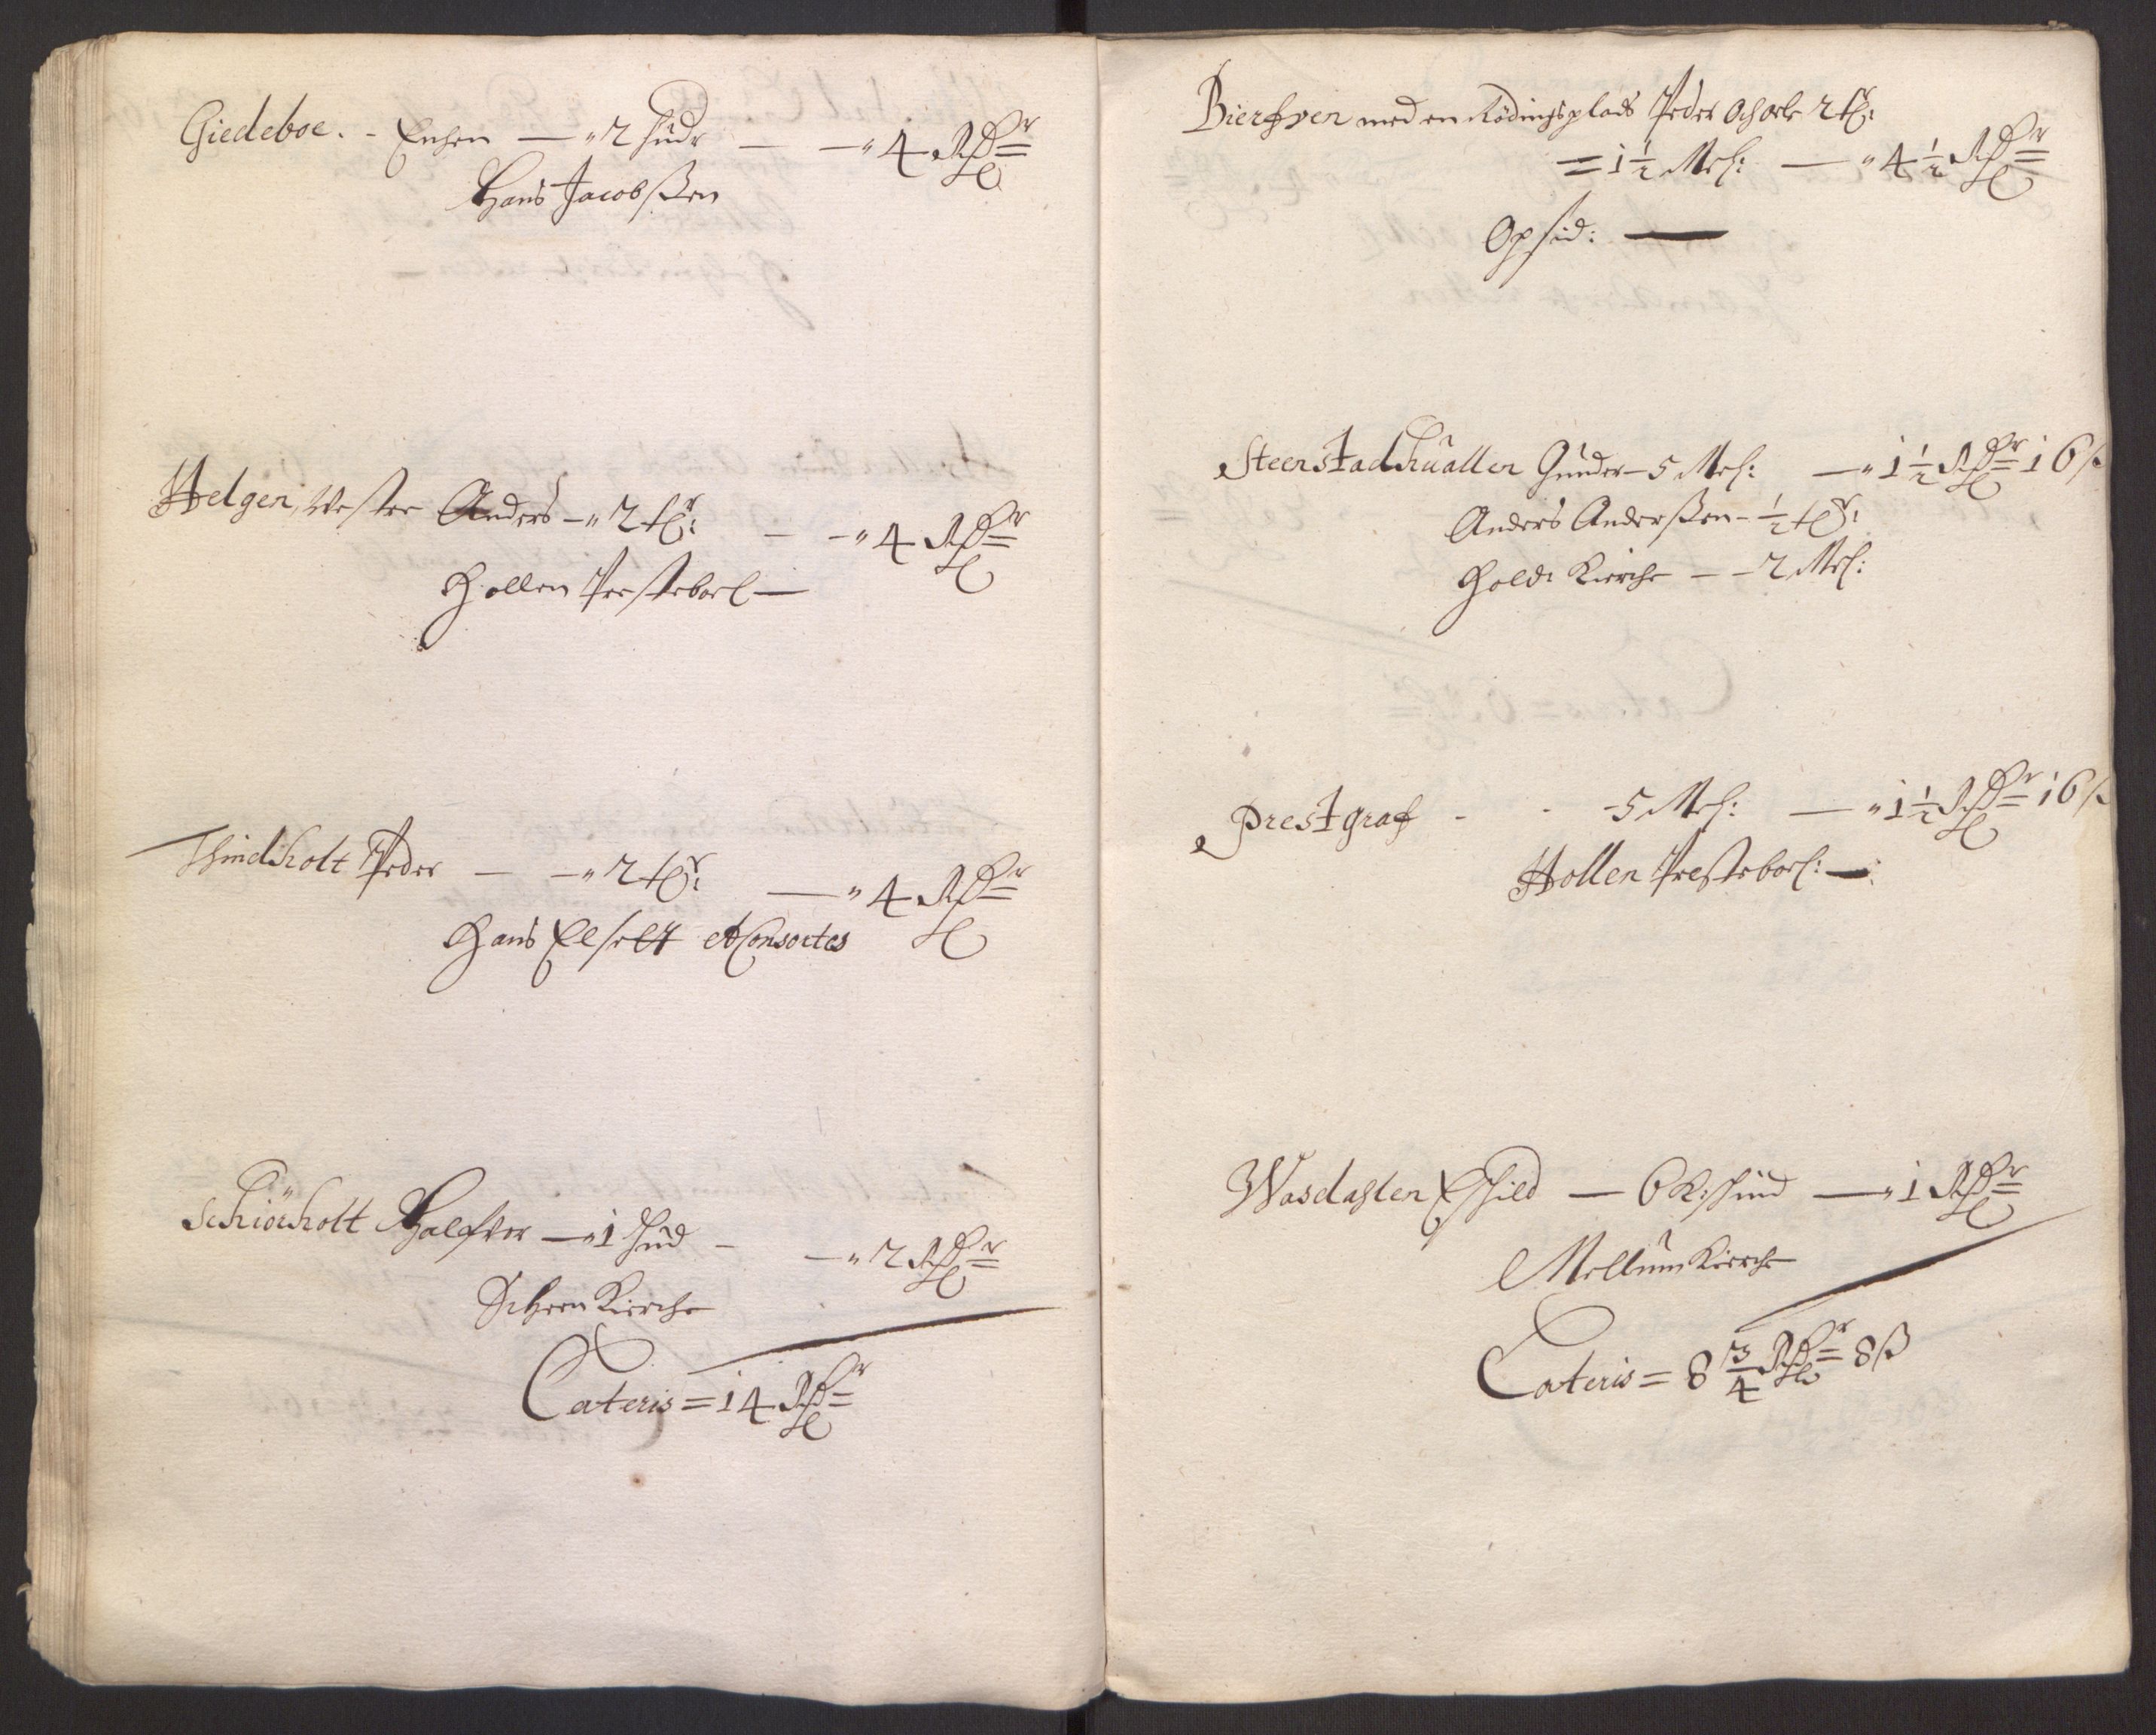 Giedeboe. - Enchen — " 2 hudr — — " 4 Rdr
Hans Jacobßen
Helgen, Vester Anders — " 2 td: — — " 4 Rdr
Hollen Presteboel —
Thindholt Peder — — " 2 td: — " 4 Rdr
Hans et Consortes
Schiörholt Halfvor — " 1 hud — — " 2 Rdr
Scheen Kirche
Lateris = 14 Rdr
Bierfven med en Rödingsplads Peder 2 td:
= 1½ Mel: — " 4½ Rdr
Opsid: —
Steenstadhualler Gunder — 5 Mel: — " 1½ Rdr 16 ß
Anders Anderßen — ½ td:
Holde Kirche — — 2 Mel:
Prestgraf - - 5 Mel: — " 1½ Rdr 16 ß
Hollen Presteboel: —
Wasdahlen Eschild — 6 K: schind — " 1 Rdr
Mellum Kirche
Lateris = 8¾ Rdr 8 ß